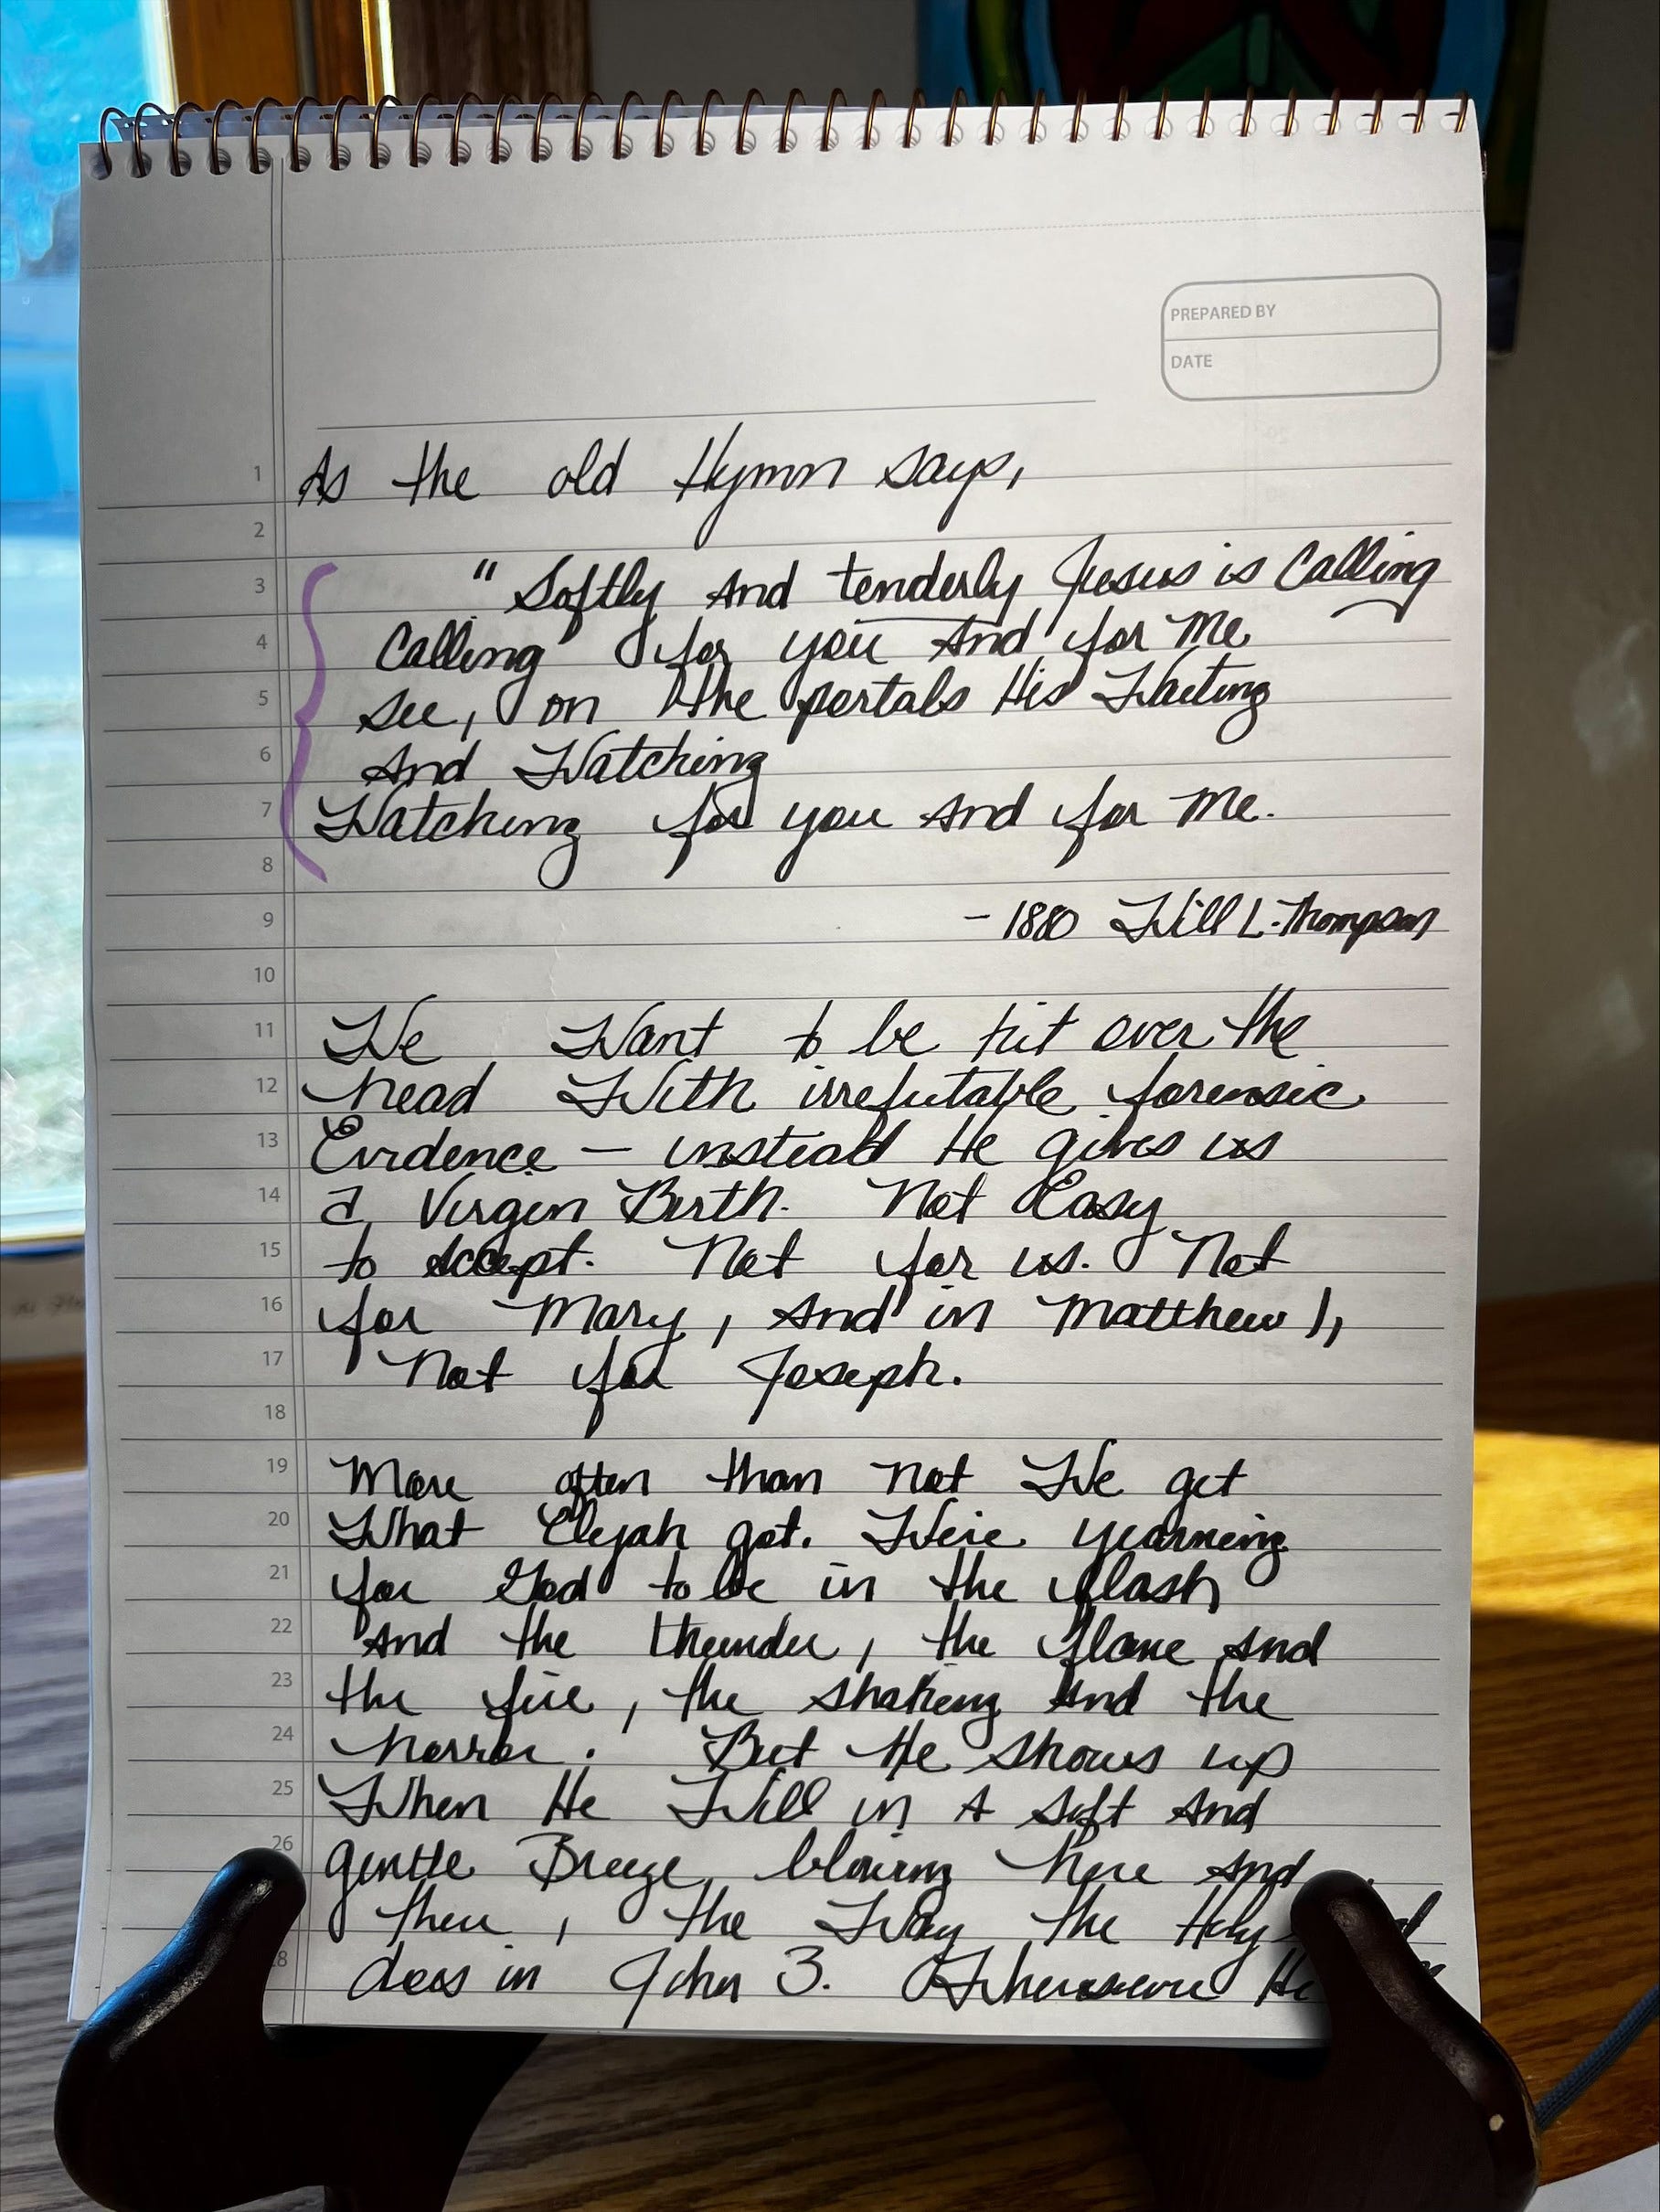 PREPARED BY
DATE
1 As the old Hymn says,
2
3 "Softly And tenderly Jesus is Calling
4 Calling for you And for Me
5 see, on the portals His Waiting
6 And Watching
7 Watching for you And for Me.
8
9 - 1880 Will L. Thompson
10
11 We Want to be hit over the
12 head With irrefutable forensic
13 Evidence — instead He gives us
14 a Virgin Birth. Not Easy
15 to Accept. Not for us. Not
16 for Mary, And in Matthew 1,
17 Not for Joseph.
18
19 More often than Not We get
20 What Elijah got. We're yearning
21 for God to be in the flash
22 And the thunder, the flame And
23 the fire, the shaking And the
24 horror. But He shows up
25 When He Will in A Soft And
26 gentle Breeze blowing here And
there, the Way the Holy
28 does in John 3. Wherever He